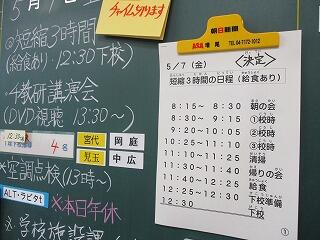 チャイム切ります
5月7
短縮3時間
(給食あり・12:30下校)
教研講演会
(DVD視聴 13:30〜)
4名
宮代 岡庭
児玉 中広
*空調点検(13時〜)
ALT・ラビタt
*本日年休
朝日新聞
ASA 増尾 TEL 04-7172-1012
5/7(金) <決定>
短縮3時間の日程(給食あり)
8:15〜 8:30 朝の会
8:35〜 9:20 ①校時
9:20〜10:05 ②校時
10:25〜11:10 ③校時
11:10〜11:25 清掃
11:30〜11:40 帰りの会
11:40〜12:25 給食
12:25〜12:30 下校準備
12:30 下校